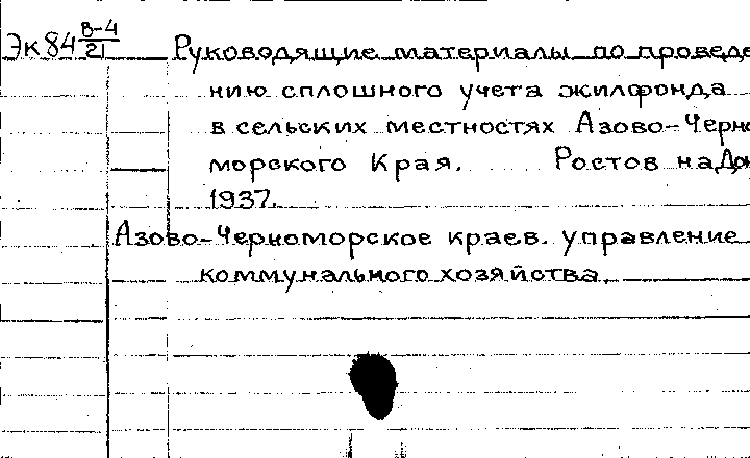 Эк84 В-4/21 Руководящие материалы по проведе
нию сплошного учета жилфонда
в сельских местностях Азово-Черно
морского Края. Ростов на Дон
1937.
Азово-Черноморское краев. управление
коммунального хозяйства.